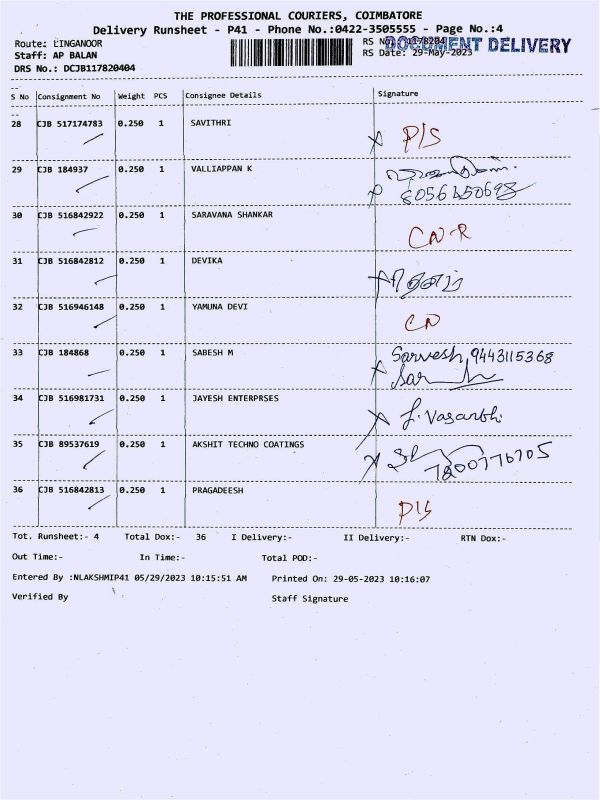 THE PROFESSIONAL COURIERS, COIMBATORE
Delivery Runsheet - P41 - Phone No.:0422-3505555 - Page No.:4
Route: LINGANOOR
RS No.: 1178204
DOCUMENT DELIVERY
Staff: AP BALAN
RS Date: 29-May-2023
DRS No.: DCJB117820404
S No Consignment No Weight PCS Consignee Details Signature
28 CJB 517174783 0.250 1 SAVITHRI P/S
29 CJB 184937 0.250 1 VALLIAPPAN K
30 CJB 516842922 0.250 1 SARAVANA SHANKAR CNR
31 CJB 516842812 0.250 1 DEVIKA
32 CJB 516946148 0.250 1 YAMUNA DEVI CN
33 CJB 184868 0.250 1 SABESH M Sarvesh 9443115368
34 CJB 516981731 0.250 1 JAYESH ENTERPRSES J. Vasanthi
35 CJB 89537619 0.250 1 AKSHIT TECHNO COATINGS 7200776705
36 CJB 516842813 0.250 1 PRAGADEESH P/S
Tot. Runsheet:- 4 Total Dox:- 36 I Delivery:- II Delivery:- RTN Dox:-
Out Time:- In Time:- Total POD:-
Entered By :NLAKSHMIP41 05/29/2023 10:15:51 AM Printed On: 29-05-2023 10:16:07
Verified By Staff Signature